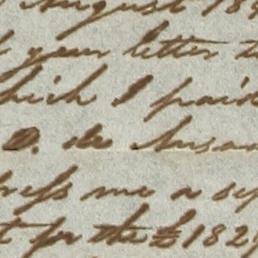 August 18
your letter
hich I paid
D. de Susa
ress me a se
t for the £ 182